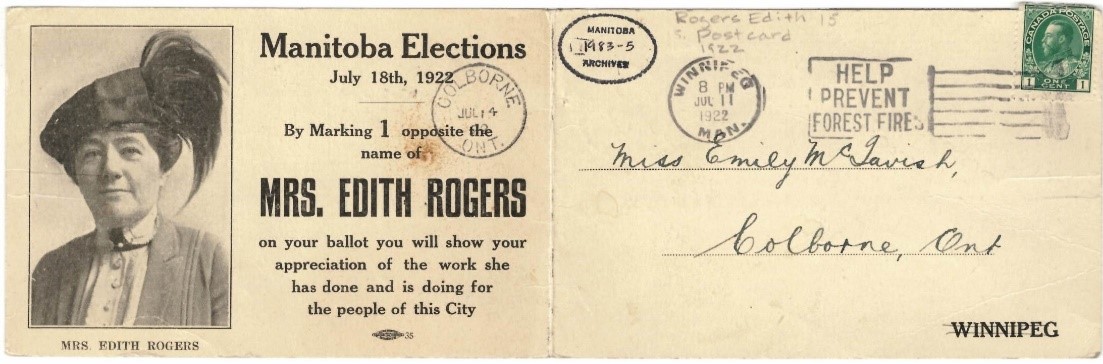 Manitoba Elections
July 18th, 1922
By Marking 1 opposite the
name of
MRS. EDITH ROGERS
on your ballot you will show your
appreciation of the work she
has done and is doing for
the people of this City
35
MRS. EDITH ROGERS
COLBORNE
JUL 14
ONT.
MANITOBA
1983-5
ARCHIVES
Rogers Edith 15
Postcard
1922
WINNIPEG
8 PM
JUL 11
1922
MAN.
HELP
PREVENT
FOREST FIRES
CANADA POSTAGE
1 ONE 1
CENT
Miss Emily McTavish,
Colborne, Ont
WINNIPEG